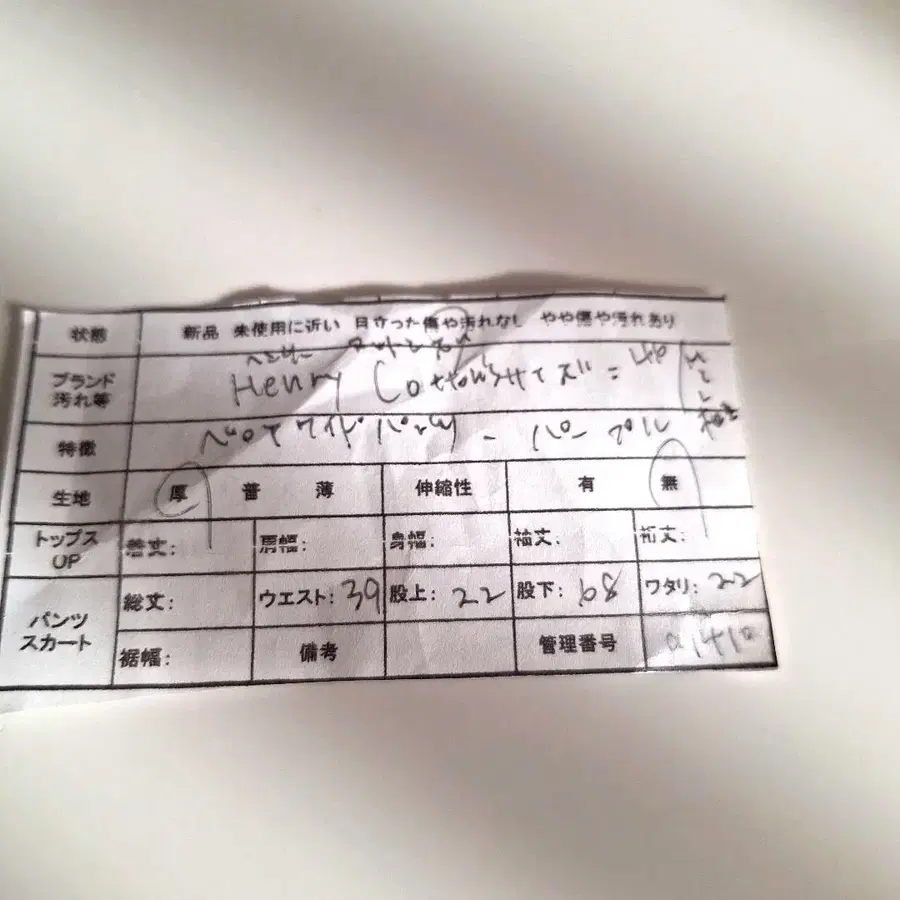 状態 新品 未使用に近い 目立った傷や汚れなし やや傷や汚れあり
ヘンリー コットンズ
ブランド 汚れ等 Henry Cotton's サイズ=
特徴 ワイドパンツ - パープル
生地 厚 普 薄 伸縮性 有 無
トップス UP 着丈: 肩幅: 身幅: 袖丈: 裄丈:
パンツ スカート 総丈: ウエスト: 39 股上: 22 股下: 68 ワタリ: 22
裾幅: 備考 管理番号 a1410